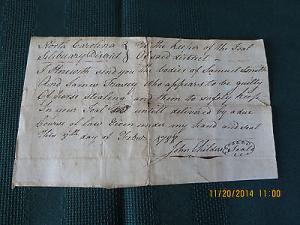 North Carolina } To the Keeper of the Goal
Salisbury District } of said district —
I Herewith send you the bodies of Samuel
And James who appears to be guilty
Of horse stealing and them to safely keep
In your Goal untill delivered by a due
Course of law Given under my hand and seal
This 9th day of Febuy
John Childers Seal
11/20/2014 11:00